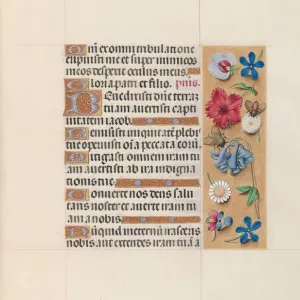 m ex omni tribulatione
eripuisti me et super inimicos
meos despexit oculus meus.
Gloria patri et filio. ps̄mꝰ.
Benedixisti dn̄e terrā
tuam avertisti capti
vitatem iacob.
Remisisti iniquitatē plebis
tue operuisti oīa peccata eorū.
Mitigasti omnem iram tu
am avertisti ab ira indigna
tionis tue.
Converte nos deus salu
taris noster et averte iram tu
am a nobis.
Nunquid ineternū irasceris
nobis aut extendes iram tuā a